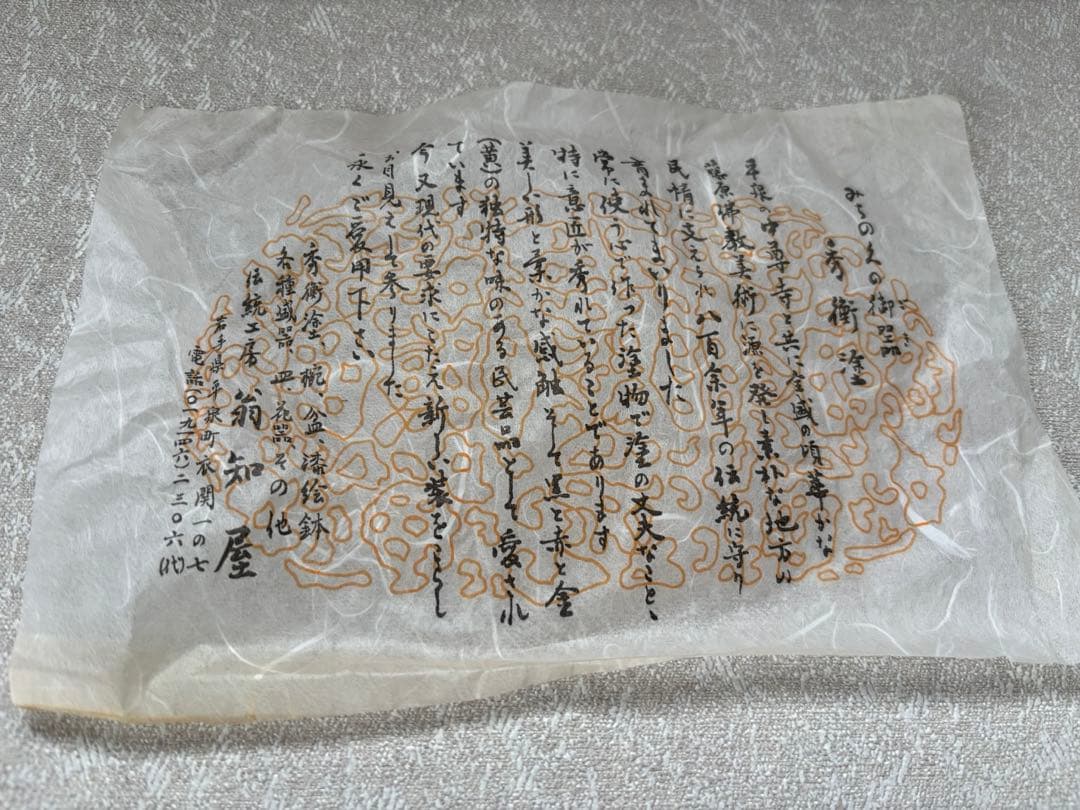 みちのくの御器
ごき
秀衡塗
平泉の中尊寺と共に全盛の頃華かな
藤原佛教美術に源を発し素朴な地方の
民情に支えられ八百余年の伝統に守り
育まれてまいりました
常に使う心で作った塗物で塗の丈夫なこと、
特に意匠が秀れていることであります
美しい形と柔かな感触そして黒と赤と金
(黄)の独特な味のある民芸品として愛され
ています
今又現代の要求にこたえ新しい装をこらし
お目見えして参りました
永くご愛用下さい
秀衡塗、椀、盆、漆絵鉢
各種盛器 皿 花器その他
伝統工房 翁知屋
岩手県平泉町衣関一の七
電話〇一九一(四六)二三〇六(代)